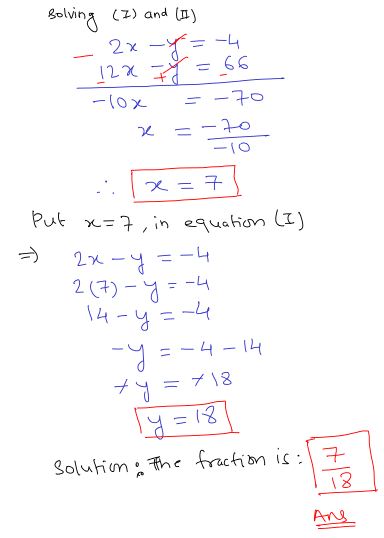 Solving (I) and (II)
2x - y = -4
- 12x - y = 66
- + -
-10x = -70
x = -70
-10
∴ x = 7
Put x=7, in equation (I)
⇒) 2x - y = -4
2(7) - y = -4
14 - y = -4
-y = -4 - 14
+y = +18
y = 18
Solution : The fraction is : 7
18
Ans